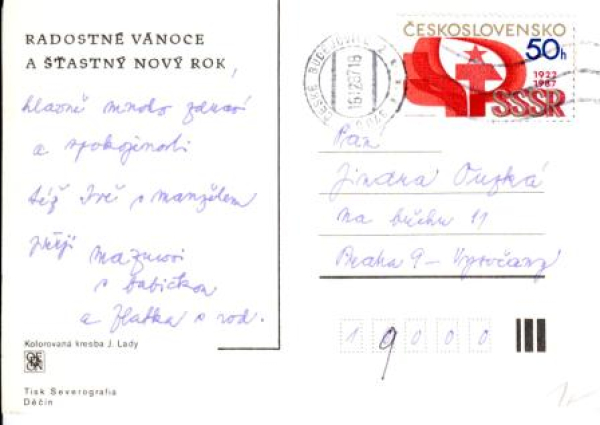 RADOSTNÉ VÁNOCE
A ŠŤASTNÝ NOVÝ ROK,
hlavně mnoho zdraví
a spokojenosti
též Ivě s manželem
přejí
s babičkou
a Zlatka s rod.
Kolorovaná kresba J. Lady
Tisk Severografia
Děčín
ČESKOSLOVENSKO
50h
1922
1987
SSSR
ČESKÉ BUDĚJOVICE 2
Paní
Jindra
na břehu 11
Praha 9 - Vysočany
19000